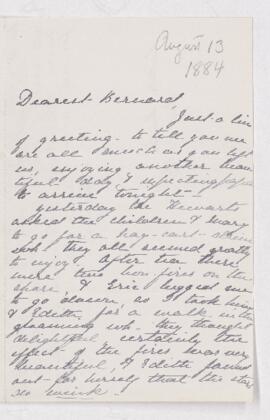 August 13
1884
Dearest Bernard,
Just a line
of greeting to tell you we
are all much as you left
us, enjoying another beau-
tiful day & expecting
to arrive tonight -
Yesterday the Stewarts
asked the children & Mary
to go for a hay-cart
wh. they all seemed greatly
to enjoy. After tea there
were two bon-fires on the
shore, & Eric begged me
to go down, so I took him
& Edith, for a walk in the
gloaming wh. they thought
delightful. Certainly the
effect of the fires was very
beautiful, & Edith found
out for herself that the stars
do wink.